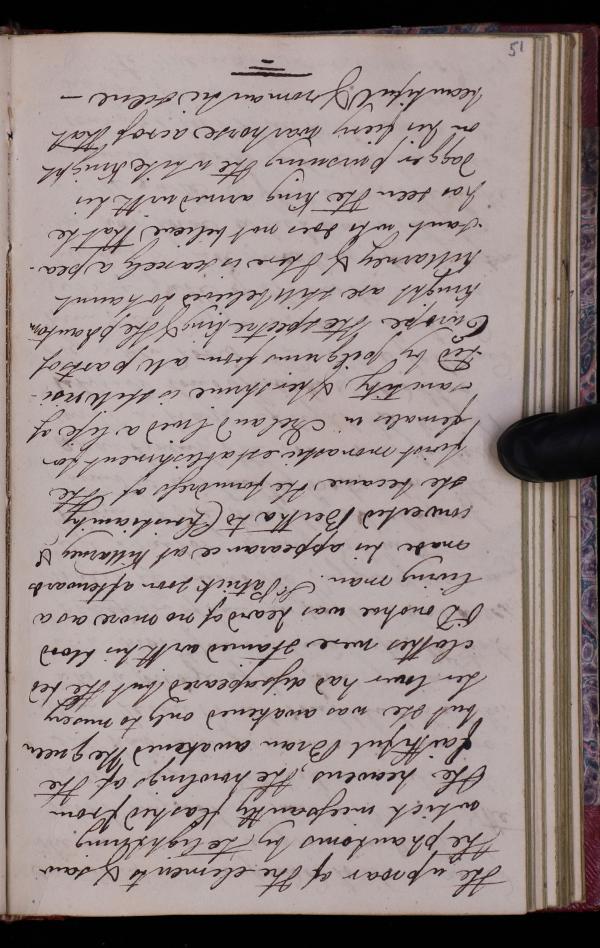 the uproar of the elements & saw
the phantoms by the lightning
which incessantly flashed from
the heavens, the howlings of the
faithful Bran awakened the queen
but she was awakened only to misery
her lover had disappeared but the bed
clothes were stained with his blood
O'Donohue was heard of no more as a
living man. St Patrick soon afterwards
made his appearance at Killarney &
converted Bertha to Christianity
she became the foundress of the
first monastic establishment for
females in Ireland lived a life of
sanctity & her shrine is still visi-
ted by pilgrims from all parts of
Europe. The spectre king & the phantom
knight are still believed to haunt
Killarney & there is scarcely a pea-
sant who does not believe that he
has seen the king armed with his
dagger pursuing the white knight
on his fiery war horse across that
beautiful & romantic scene —
51